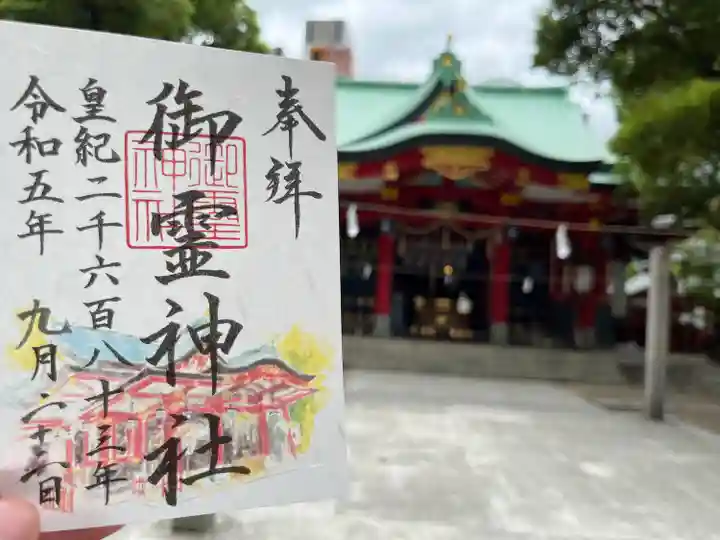 奉拝
御霊神社
御霊神社
皇紀二千六百八十三年
令和五年 九月二十二日